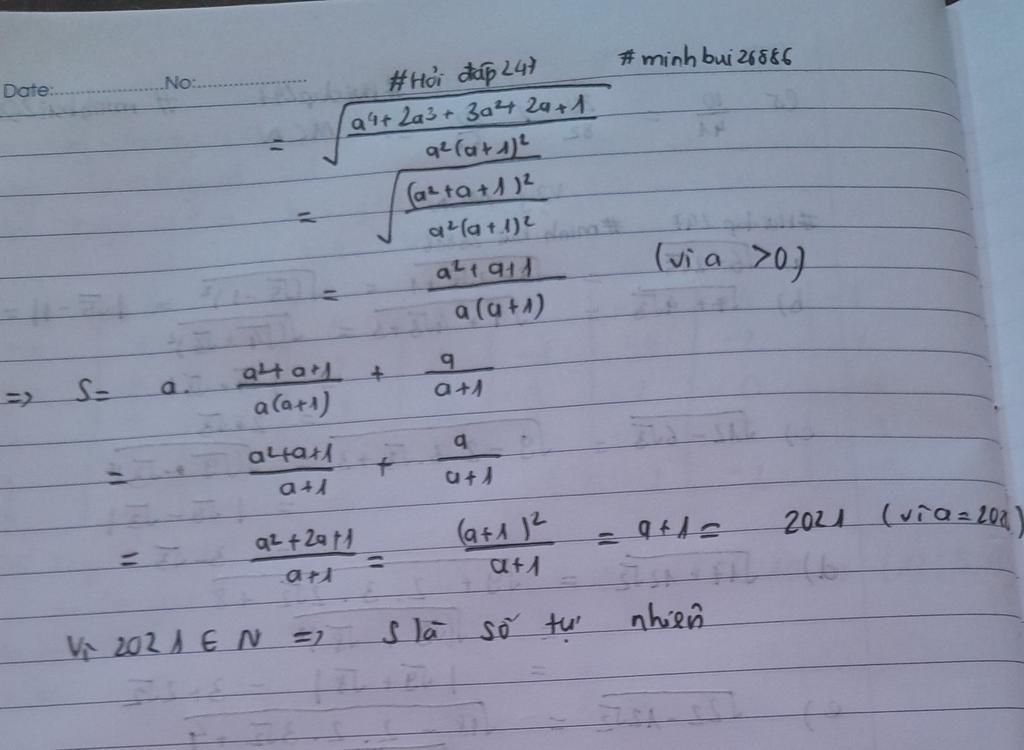 #Hỏi đáp247 #minhbui26886
Date:.................No:.................
= √((a⁴+2a³+3a²+2a+1)/(a²(a+1)²))
= √((a²+a+1)²/(a²(a+1)²))
= (a²+a+1)/(a(a+1)) (vì a >0)
=> S= a. (a²+a+1)/(a(a+1)) + a/(a+1)
= (a²+a+1)/(a+1) + a/(a+1)
= (a²+2a+1)/(a+1) = (a+1)²/(a+1) = a+1= 2021 (vì a=202.)
Vì 2021 ∈ N => S là số tự nhiên